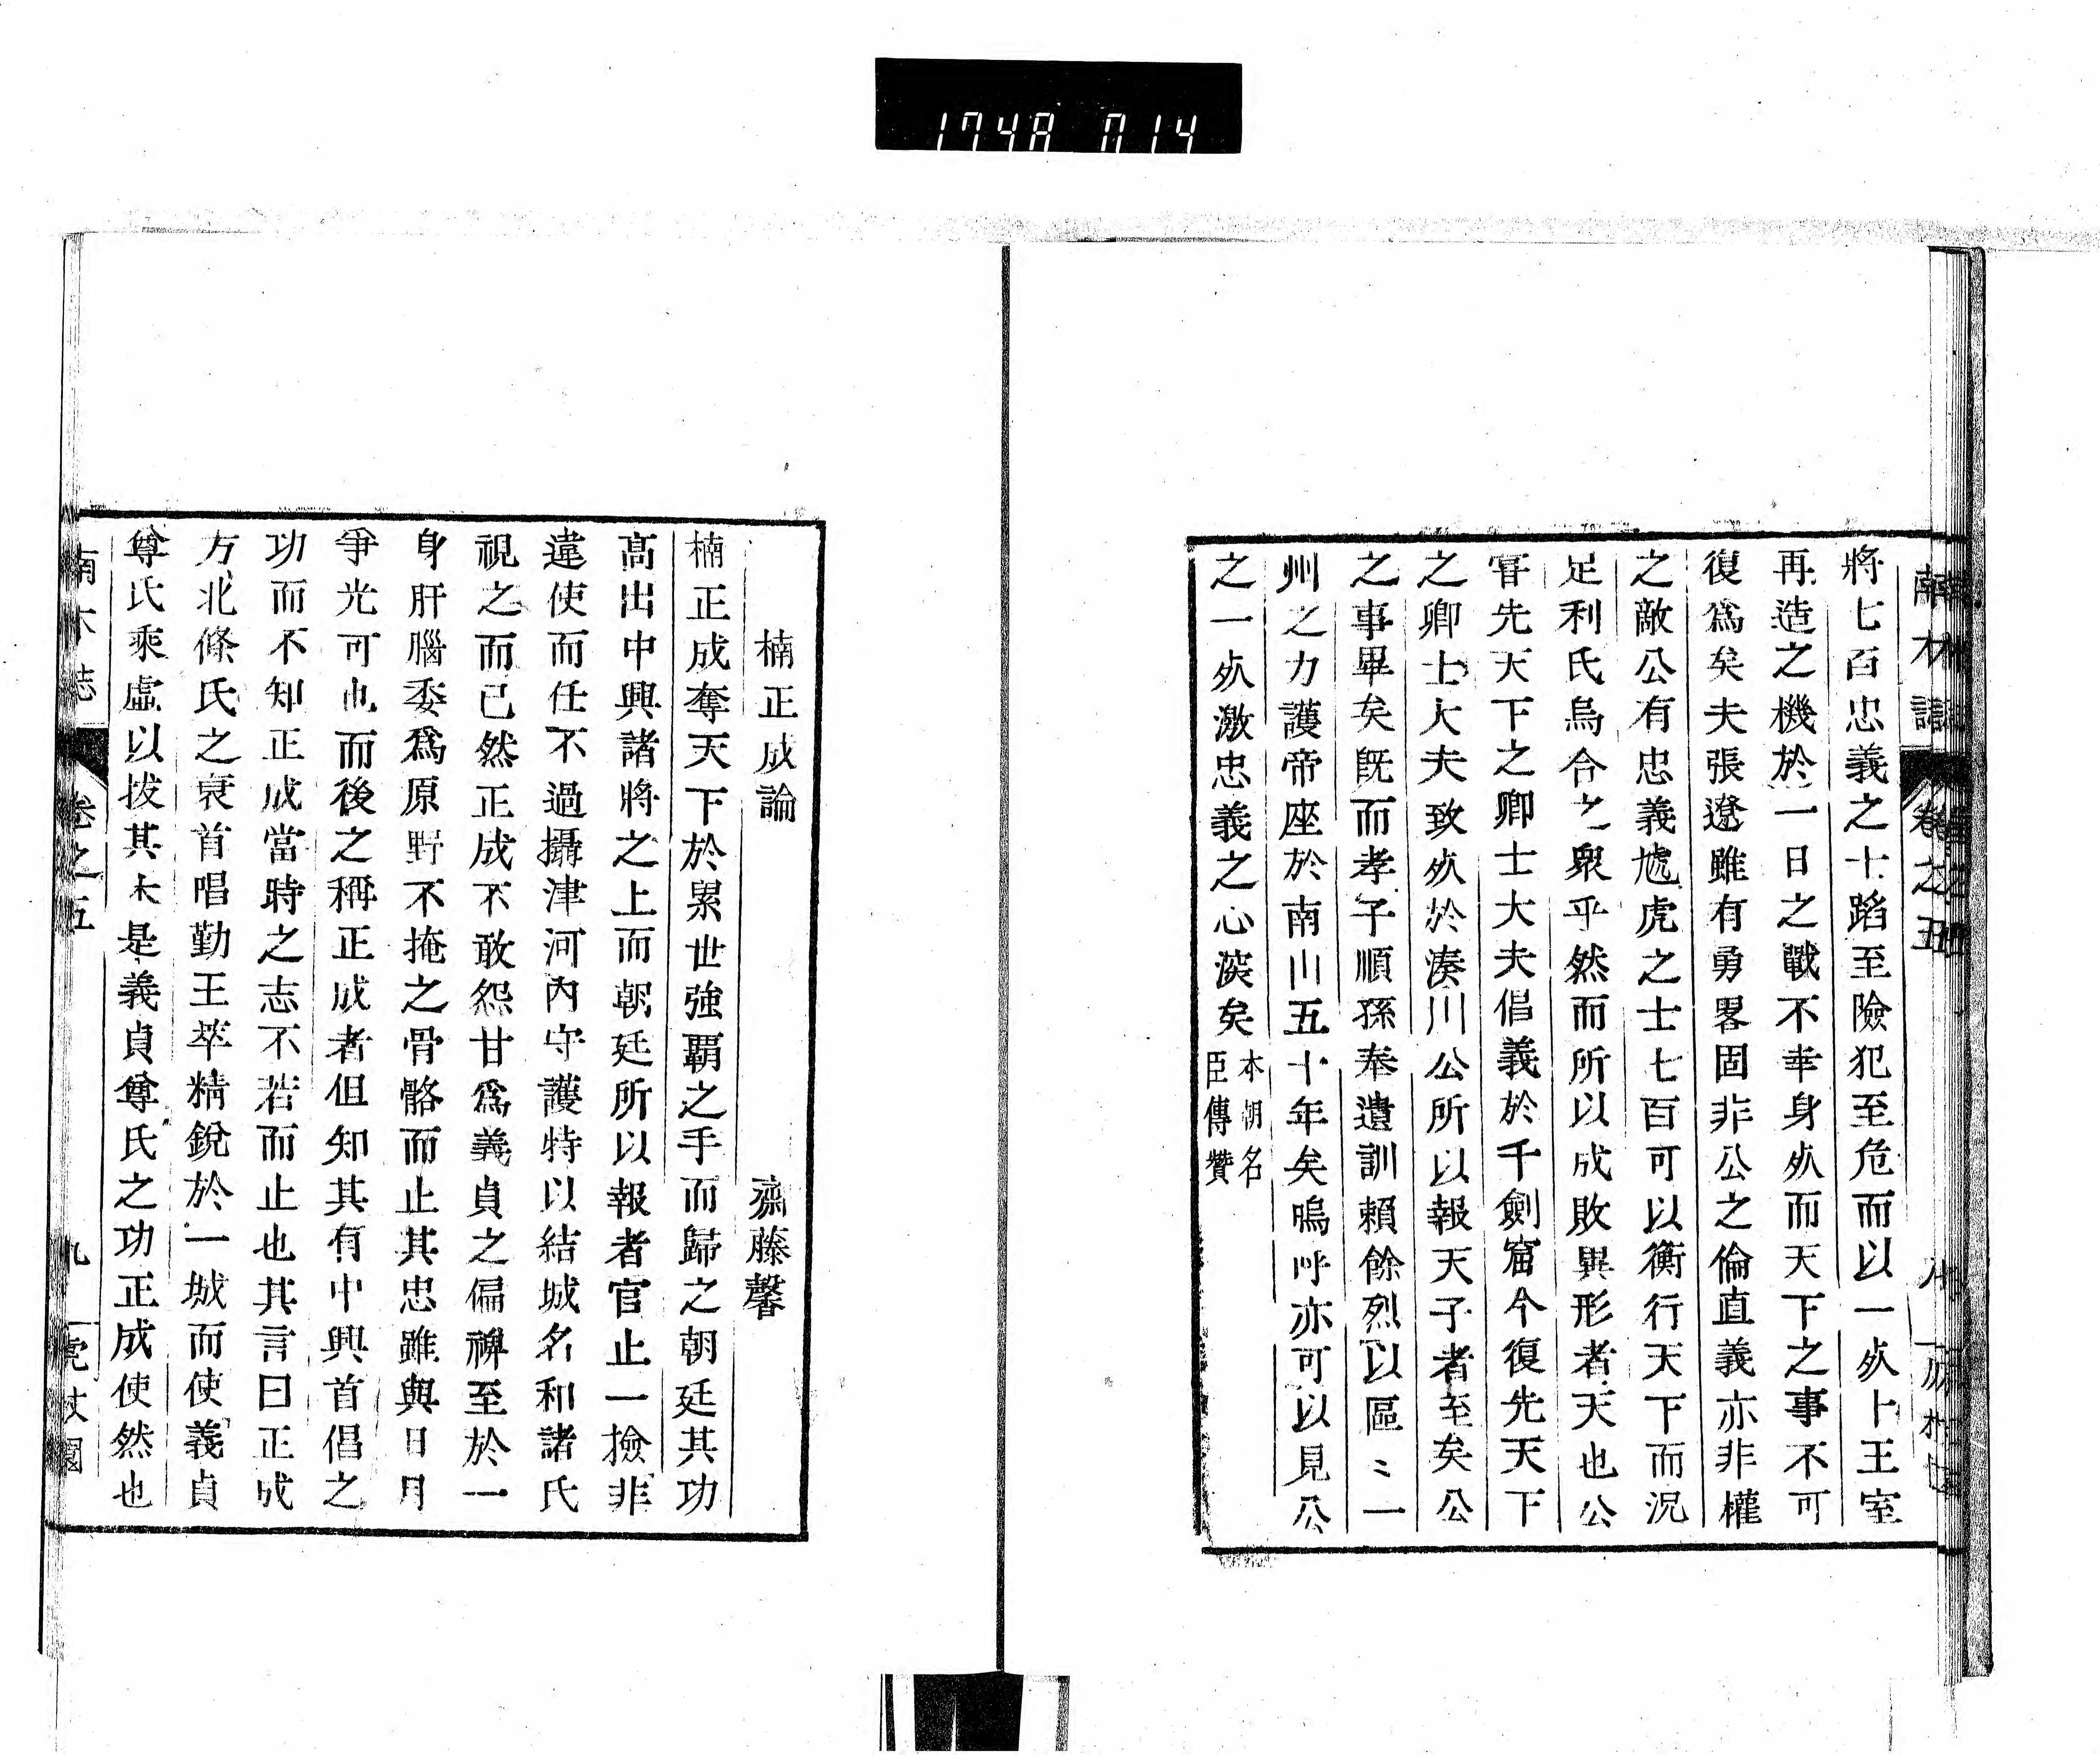 1748 014
將七百忠義之士蹈至險犯至危而以一死卜王室
再造之機於一日之戰不幸身死而天下之事不可
復爲矣夫張遼雖有勇畧固非公之倫直義亦非權
之敵公有忠義虓虎之士七百可以衡行天下而況
足利氏烏合之衆乎然而所以成敗異形者天也公
甞先天下之卿士大夫倡義於千劍窟今復先天下
之卿士大夫致死於湊川公所以報天子者至矣公
之事畢矣既而孝子順孫奉遺訓賴餘烈以區〻一
州之力護帝座於南山五十年矣嗚呼亦可以見公
之一死激忠義之心深矣
本朝名
臣傳贊
楠正成論 齋藤馨
楠正成奪天下於累世強覇之手而歸之朝廷其功
高出中興諸將之上而朝廷所以報者官止一撿非
違使而任不過攝津河內守護特以結城名和諸氏
視之而已然正成不敢怨甘爲義貞之偏裨至於一
身肝腦委爲原野不掩之骨骼而止其忠雖與日月
爭光可也而後之稱正成者但知其有中興首倡之
功而不知正成當時之志不若而止也其言曰正成
方北條氏之衰首唱勤王萃精銳於一城而使義貞
尊氏乘虛以拔其本是義貞尊氏之功正成使然也
卷之五 九